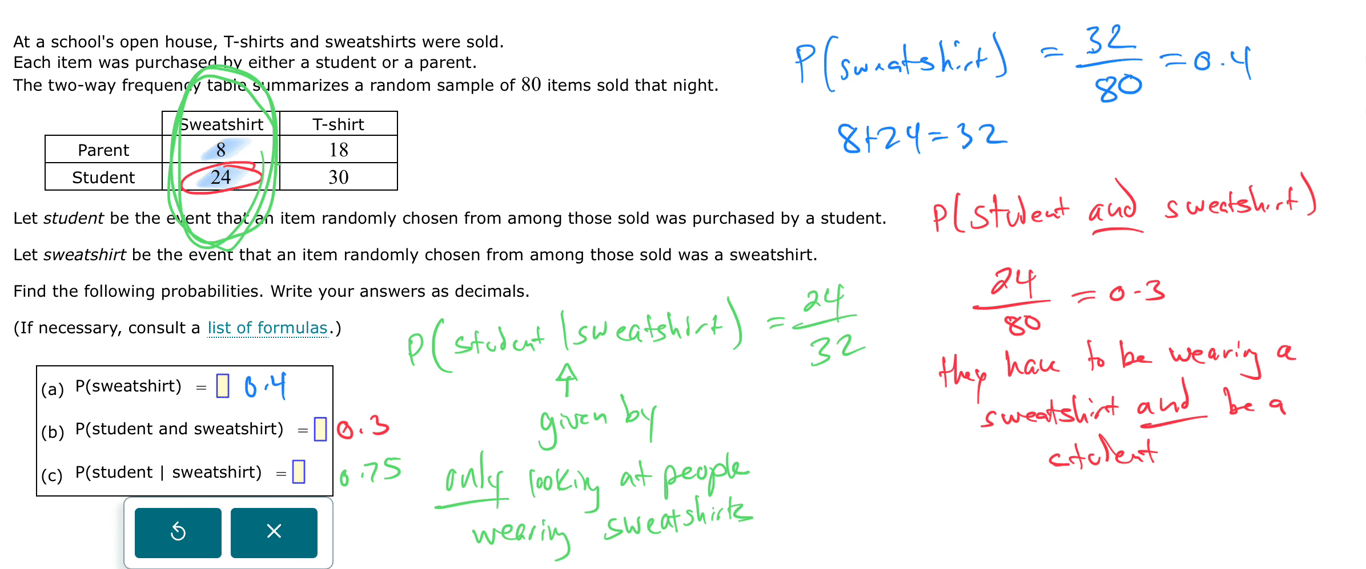 At a school's open house, T-shirts and sweatshirts were sold.
Each item was purchased by either a student or a parent.
The two-way frequency table summarizes a random sample of 80 items sold that night.
Sweatshirt T-shirt
Parent 8 18
Student 24 30
Let student be the event that an item randomly chosen from among those sold was purchased by a student.
Let sweatshirt be the event that an item randomly chosen from among those sold was a sweatshirt.
Find the following probabilities. Write your answers as decimals.
(If necessary, consult a list of formulas.)
(a) P(sweatshirt) = 0.4
(b) P(student and sweatshirt) = 0.3
(c) P(student | sweatshirt) = 0.75
P(sweatshirt) = 32/80 = 0.4
8+24=32
P(student and sweatshirt)
24/80 = 0.3
they have to be wearing a
sweatshirt and be a
student
P(student | sweatshirt) = 24/32
given by
only looking at people
wearing sweatshirts